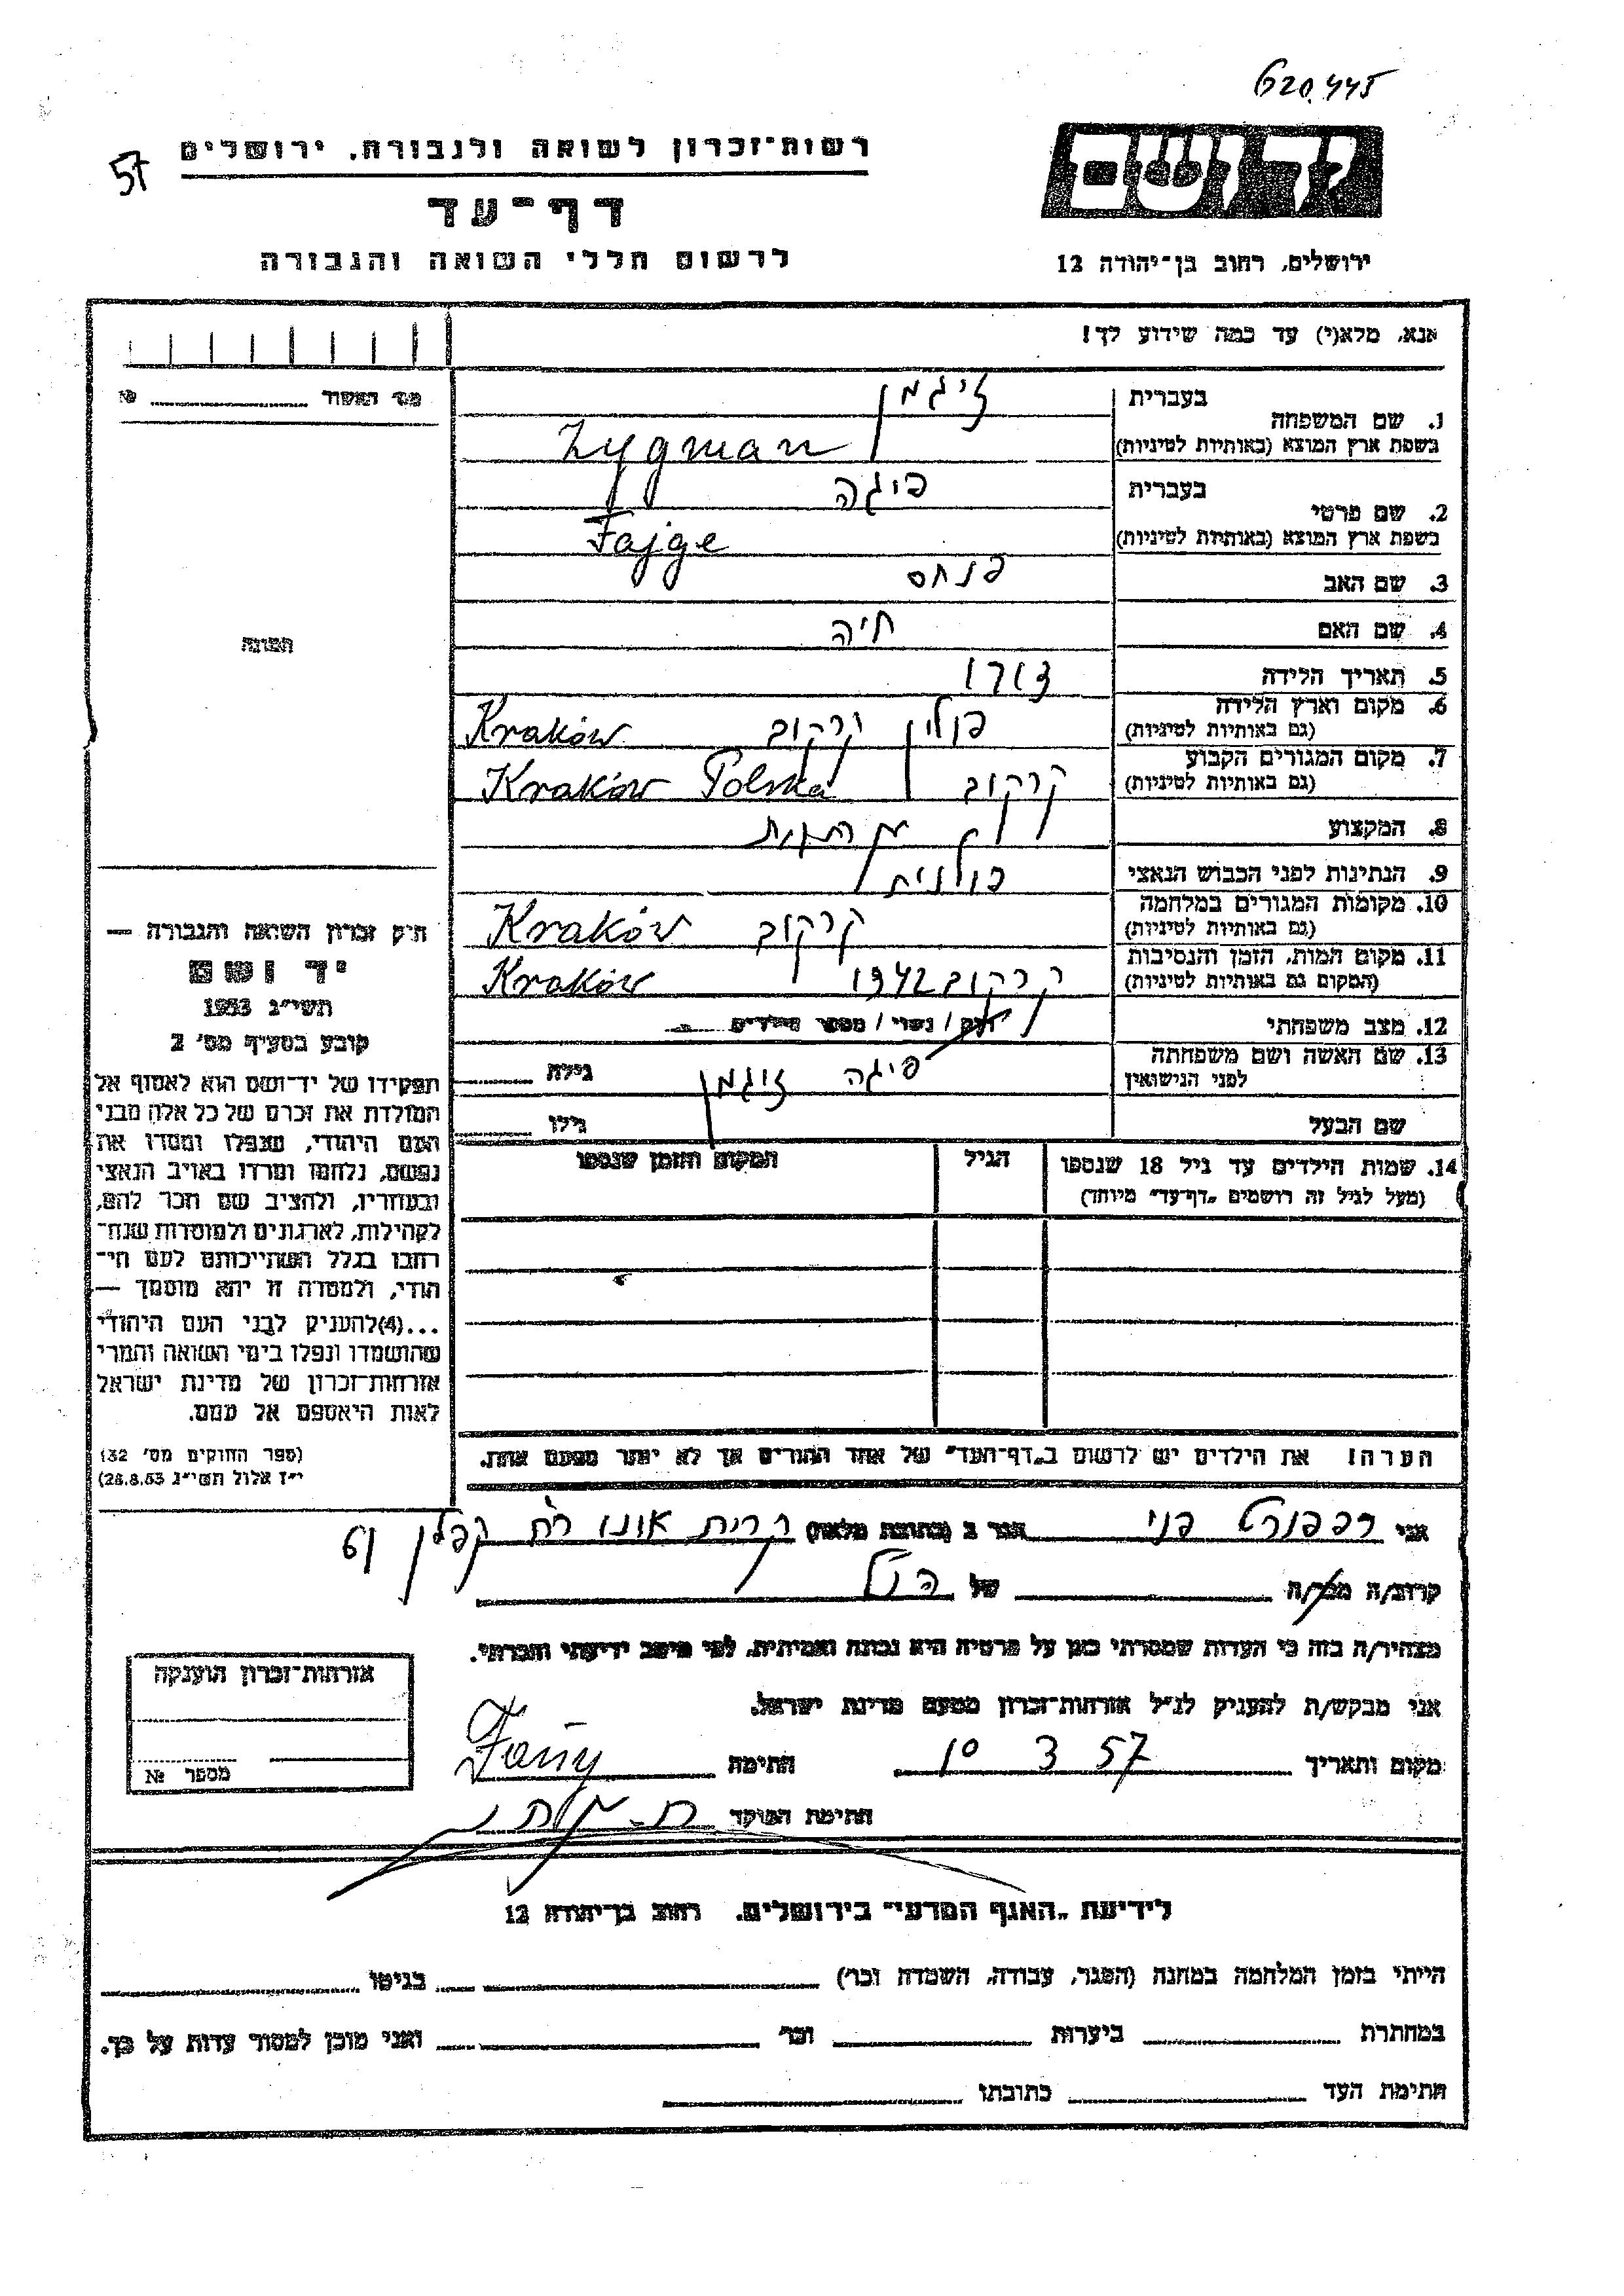 620.445
57
רשות־זכרון לשואה ולגבורה, ירושלים
דף־עד
לרשום חללי השואה והגבורה
ירושלים, רחוב בן־יהודה 12
אנא, מלא(י) עד כמה שידוע לך!
מס' האשור №
בעברית
זיגמן
1. שם המשפחה
בשפת ארץ המוצא (באותיות לטיניות)
Zygman
בעברית
פיגה
2. שם פרטי
בשפת ארץ המוצא (באותיות לטיניות)
Fajge
3. שם האב פנחס
4. שם האם חיה
תמונה
5. תאריך הלידה
6. מקום וארץ הלידה
(גם באותיות לטיניות)
פולין קרקוב Kraków
7. מקום המגורים הקבוע
(גם באותיות לטיניות)
קרקוב Kraków Polska
8. המקצוע
9. הנתינות לפני הכבוש הנאצי פולנית
10. מקומות המגורים במלחמה
(גם באותיות לטיניות)
קרקוב Kraków
11. מקום המות, הזמן והנסיבות
(המקום גם באותיות לטיניות)
קרקוב 1942 Kraków
12. מצב משפחתי רוק / נשוי / מספר הילדים
13. שם האשה ושם משפחתה
לפני הנישואין
פיגה זיגמן גילה
שם הבעל גילו
14. שמות הילדים עד גיל 18 שנספו הגיל המקום והזמן שנספו
(מעל לגיל זה רושמים „דף־עד” מיוחד)
הערה! את הילדים יש לרשום ב„דף־העד” של אחד ההורים אך לא יותר מפעם אחת.
חוק זכרון השואה והגבורה —
יד ושם
תשי"ג 1953
קובע בסעיף מס' 2
תפקידו של יד־ושם הוא לאסוף אל
המולדת את זכרם של כל אלה מבני
העם היהודי, שנפלו ומסרו את
נפשם, נלחמו ומרדו באויב הנאצי
ובעוזריו, ולהציב שם וזכר להם,
לקהילות, לארגונים ולמוסדות שנח־
רבו בגלל השתייכותם לעם הי־
הודי, ולמטרה זו יהא מוסמך —
...(4) להעניק לבני העם היהודי
שהושמדו ונפלו בימי השואה והמרי
אזרחות־זכרון של מדינת ישראל
לאות היאספם אל עמם.
(ספר החוקים מס' 132
י"ז אלול תשי"ג 28.8.53)
אני רפפורט פני הגר ב (כתובת מלאה) קרית אונו רח קפלן 61
קרוב/ה מכר/ה של הנ"ל
מצהיר/ה בזה כי העדות שמסרתי כאן על פרטיה היא נכונה ואמיתית, לפי מיטב ידיעתי והכרתי.
אני מבקש/ת להעניק לנ"ל אזרחות־זכרון מטעם מדינת ישראל.
מקום ותאריך 10 3 57 חתימה Fany
חתימת הפוקד
אזרחות־זכרון הוענקה
מספר №
לידיעת „האגף המדעי” בירושלים, רחוב בן־יהודה 12
הייתי בזמן המלחמה במחנה (הסגר, עבודה, השמדה וכו') בגיטו
במחתרת ביערות וכו' ואני מוכן למסור עדות על כך.
חתימת העד כתובתו